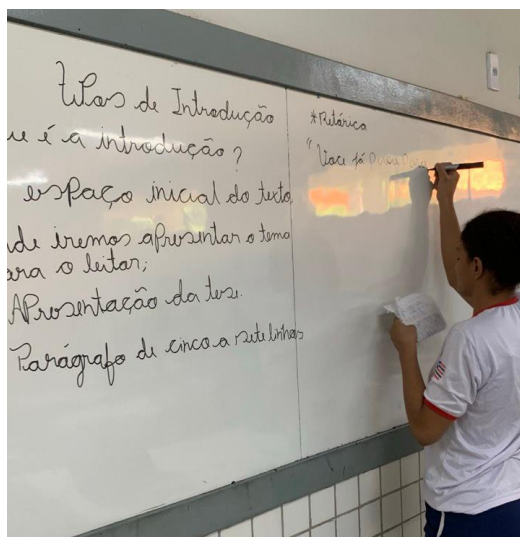 tipos de Introdução
ue é a introdução?
espaço inicial do texto,
nde iremos apresentar o tema
para o leitor;
Apresentação da tese.
Parágrafo de cinco a sete linhas
*Retórica
"Voce já parou para